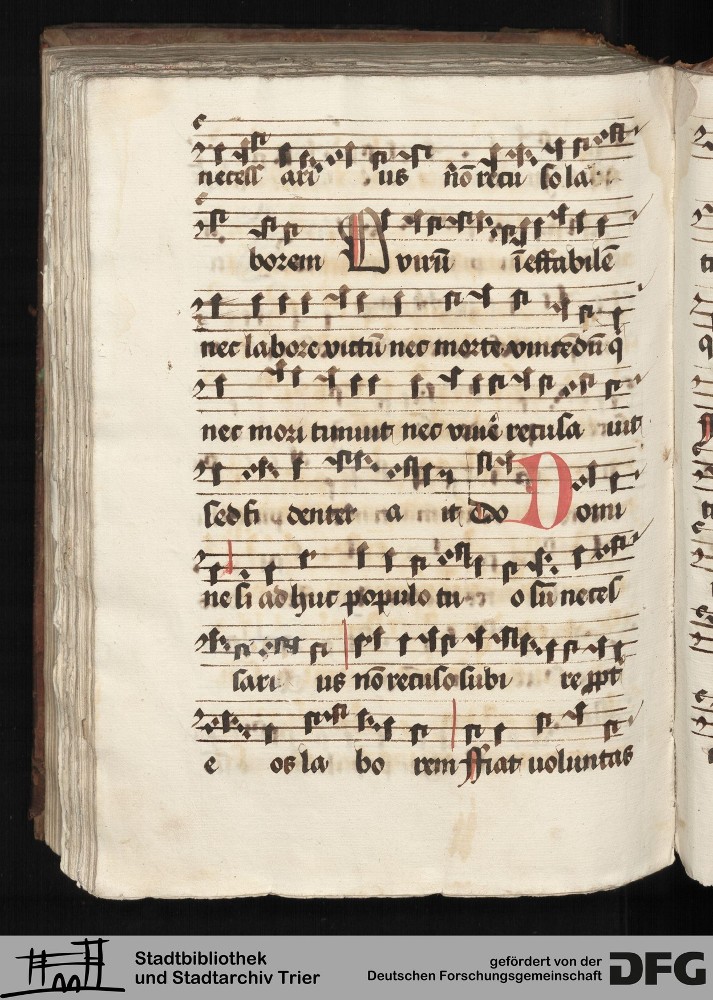 necess ari us nō recu so la
borem O virū īeffabilē
nec labore victū nec morte vincēdū q
nec mori timuit nec viuē recusa uit
sed fi denter a it Do Domi
ne si adhuc populo tu o sū necес
sari us nō recuso subi re ppt
e os la bo rem ffiat voluntas
Stadtbibliothek
und Stadtarchiv Trier
gefördert von der
Deutschen Forschungsgemeinschaft
DFG